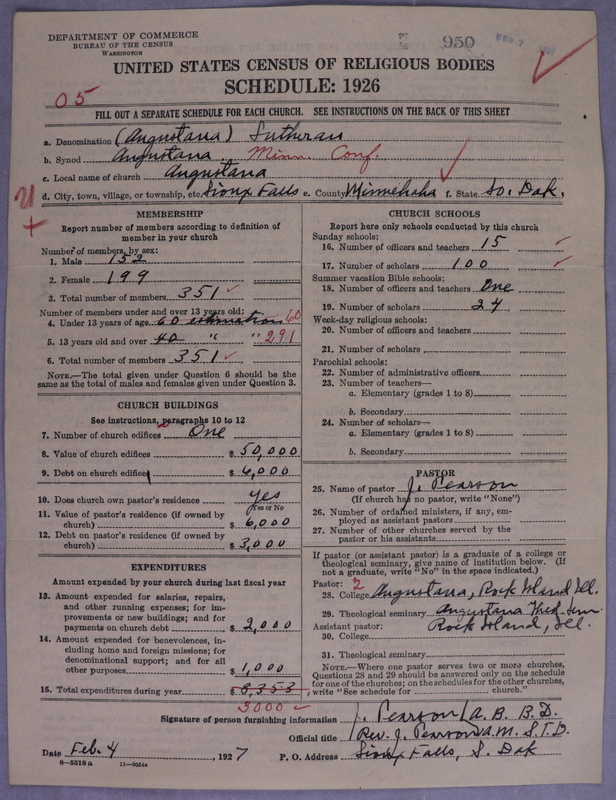 DEPARTMENT OF COMMERCE
BUREAU OF THE CENSUS
WASHINGTON
950
UNITED STATES CENSUS OF RELIGIOUS BODIES
SCHEDULE: 1926
05
FILL OUT A SEPARATE SCHEDULE FOR EACH CHURCH. SEE INSTRUCTIONS ON THE BACK OF THIS SHEET
a. Denomination (Augustana) Lutheran
b. Synod Augustana Minn. Conf.
c. Local name of church Augustana
d. City, town, village, or township, etc. Sioux Falls e. County Minnehaha f. State So. Dak.
MEMBERSHIP
Report number of members according to definition of
member in your church
Number of members, by sex:
1. Male 152
2. Female 199
3. Total number of members 351
Number of members under and over 13 years old:
4. Under 13 years of age 60 estimation 60
5. 13 years old and over 40 " " 291
6. Total number of members 351
NOTE.—The total given under Question 6 should be the
same as the total of males and females given under Question 3.
CHURCH BUILDINGS
See instructions, paragraphs 10 to 12
7. Number of church edifices One
8. Value of church edifices $ 50,000
9. Debt on church edifices $ 6,000
10. Does church own pastor's residence yes
Yes or No
11. Value of pastor's residence (if owned by
church) $ 6,000
12. Debt on pastor's residence (if owned by
church) $ 3,000
EXPENDITURES
Amount expended by your church during last fiscal year
13. Amount expended for salaries, repairs,
and other running expenses; for im-
provements or new buildings; and for
payments on church debt $ 2,000
14. Amount expended for benevolences, in-
cluding home and foreign missions; for
denominational support; and for all
other purposes $ 1,000
15. Total expenditures during year $ 8,353
3000
CHURCH SCHOOLS
Report here only schools conducted by this church
Sunday schools:
16. Number of officers and teachers 15
17. Number of scholars 100
Summer vacation Bible schools:
18. Number of officers and teachers One
19. Number of scholars 24
Week-day religious schools:
20. Number of officers and teachers
21. Number of scholars
Parochial schools:
22. Number of administrative officers
23. Number of teachers—
a. Elementary (grades 1 to 8)
b. Secondary
24. Number of scholars—
a. Elementary (grades 1 to 8)
b. Secondary
PASTOR
25. Name of pastor J. Pearson
(If church has no pastor, write "None")
26. Number of ordained ministers, if any, em-
ployed as assistant pastors
27. Number of other churches served by the
pastor or his assistants
If pastor (or assistant pastor) is a graduate of a college or
theological seminary, give name of institution below. (If
not a graduate, write "No" in the space indicated.)
Pastor: 2
28. College Augustana, Rock Island Ill.
29. Theological seminary Augustana Theol. Sem
Assistant pastor: Rock Island, Ill.
30. College
31. Theological seminary
NOTE.—Where one pastor serves two or more churches,
Questions 28 and 29 should be answered only on the schedule
for one of the churches; on the schedules for the other churches,
write "See schedule for church."
Signature of person furnishing information J. Pearson A. B. B. D.
Official title Rev. J. Pearson A. M. S. T. D.
Date Feb. 4 1927 P. O. Address Sioux Falls, S. Dak
8—5518 a 11—9254a